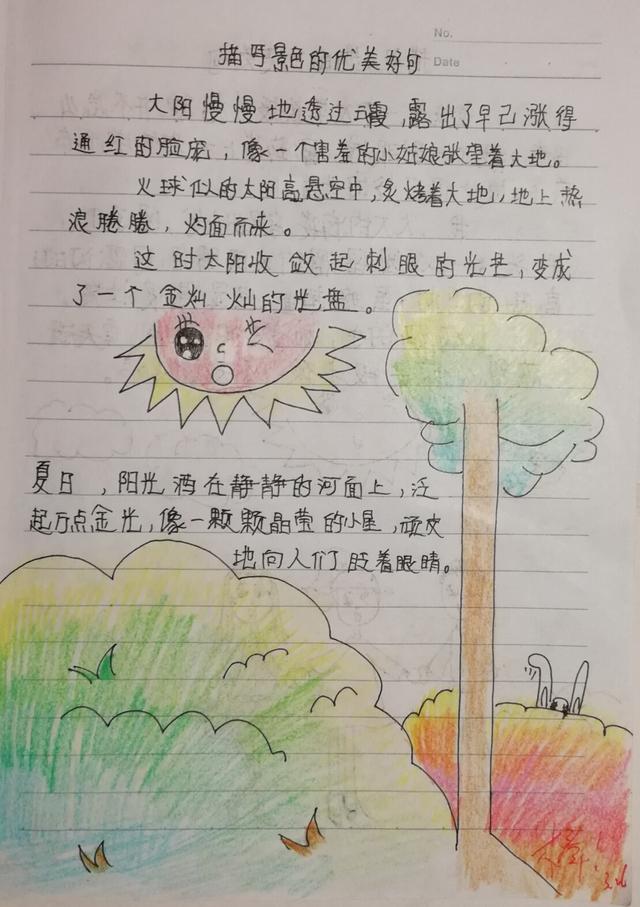 No.
描写景色的优美好句
Date
大阳慢慢地透过云霞,露出了早已涨得
通红的脸庞,像一个害羞的小姑娘张望着大地。
火球似的太阳高悬空中,炙烤着大地,地上热
浪腾腾,灼面而来。
这时太阳收敛起刺眼的光芒,变成
了一个金灿灿的光盘。
夏日,阳光洒在静静的河面上,泛
起万点金光,像一颗颗晶莹的小星,顽皮
地向人们眨着眼睛。